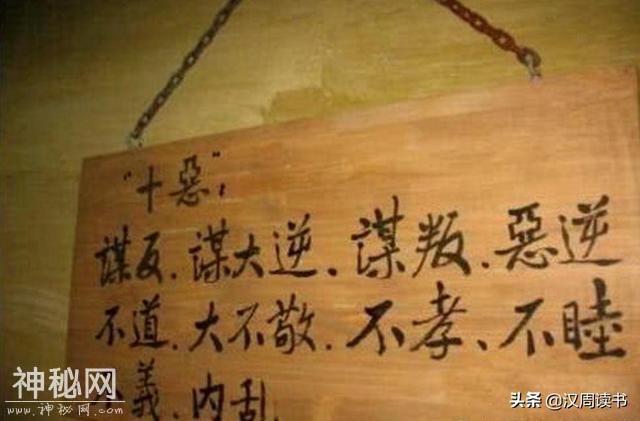 “十惡”：
謀反、謀大逆、謀叛、惡逆
不道、大不敬、不孝、不睦
不義、内乱
神秘网
www.神秘网.com
头条 @汉周读书